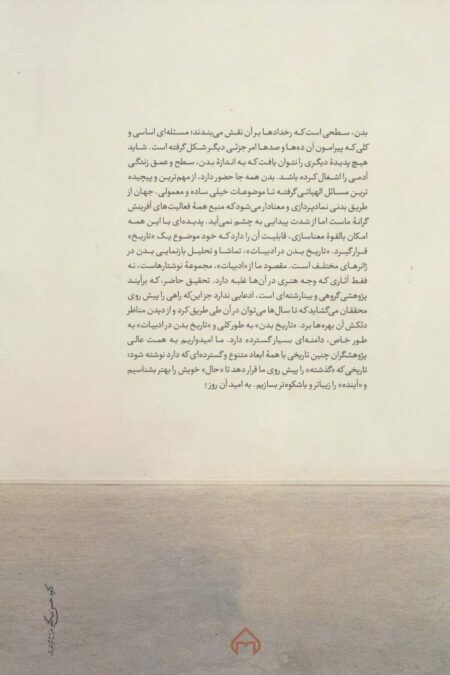 بدن، سطحی است که رخدادها بر آن نقش می‌بندند؛ مسئله‌ای اساسی و
کلی که پیرامون آن ده‌ها و صدها امر جزئی دیگر شکل گرفته است. شاید
هیچ پدیدهٔ دیگری را نتوان یافت که به اندازهٔ بدن، سطح و عمق زندگی
آدمی را اشغال کرده باشد. بدن همه جا حضور دارد، از مهم‌ترین و پیچیده
ترین مسائل الهیاتی گرفته تا موضوعات خیلی ساده و معمولی. جهان از
طریق بدنی نمادپردازی و معنادار می‌شود که منبع همهٔ فعالیت‌های آفرینش
گرانهٔ ماست اما از شدت پیدایی به چشم نمی‌آید. پدیده‌ای با این همه
امکان بالقوهٔ معناسازی، قابلیت آن را دارد که خود موضوع یک «تاریخ»
قرار گیرد. «تاریخ بدن در ادبیات»، تماشا و تحلیل بازنمایی بدن در
ژانرهای مختلف است. مقصود ما از «ادبیات»، مجموعهٔ نوشتارهاست، نه
فقط آثاری که وجه هنری در آن‌ها غلبه دارد. تحقیق حاضر، که برآیند
پژوهشی گروهی و بینارشته‌ای است، ادعایی ندارد جز این‌که راهی را پیش روی
محققان می‌گشاید که تا سال‌ها می‌توان در آن طی طریق کرد و از دیدن مناظر
دلکش آن بهره‌ها برد. «تاریخ بدن» به طور کلی و «تاریخ بدن در ادبیات» به
طور خاص، دامنه‌ای بسیار گسترده دارد. ما امیدواریم به همت عالی
پژوهشگران چنین تاریخی با همهٔ ابعاد متنوع و گسترده‌ای که دارد نوشته شود؛
تاریخی که «گذشته» را پیش روی ما قرار دهد تا «حال» خویش را بهتر بشناسیم
و «آینده» را زیباتر و باشکوه‌تر بسازیم. به امید آن روز!